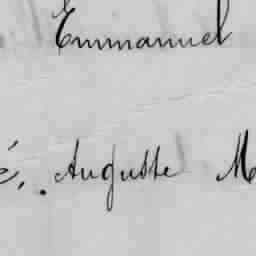 Emmanuel
é, Auguste M